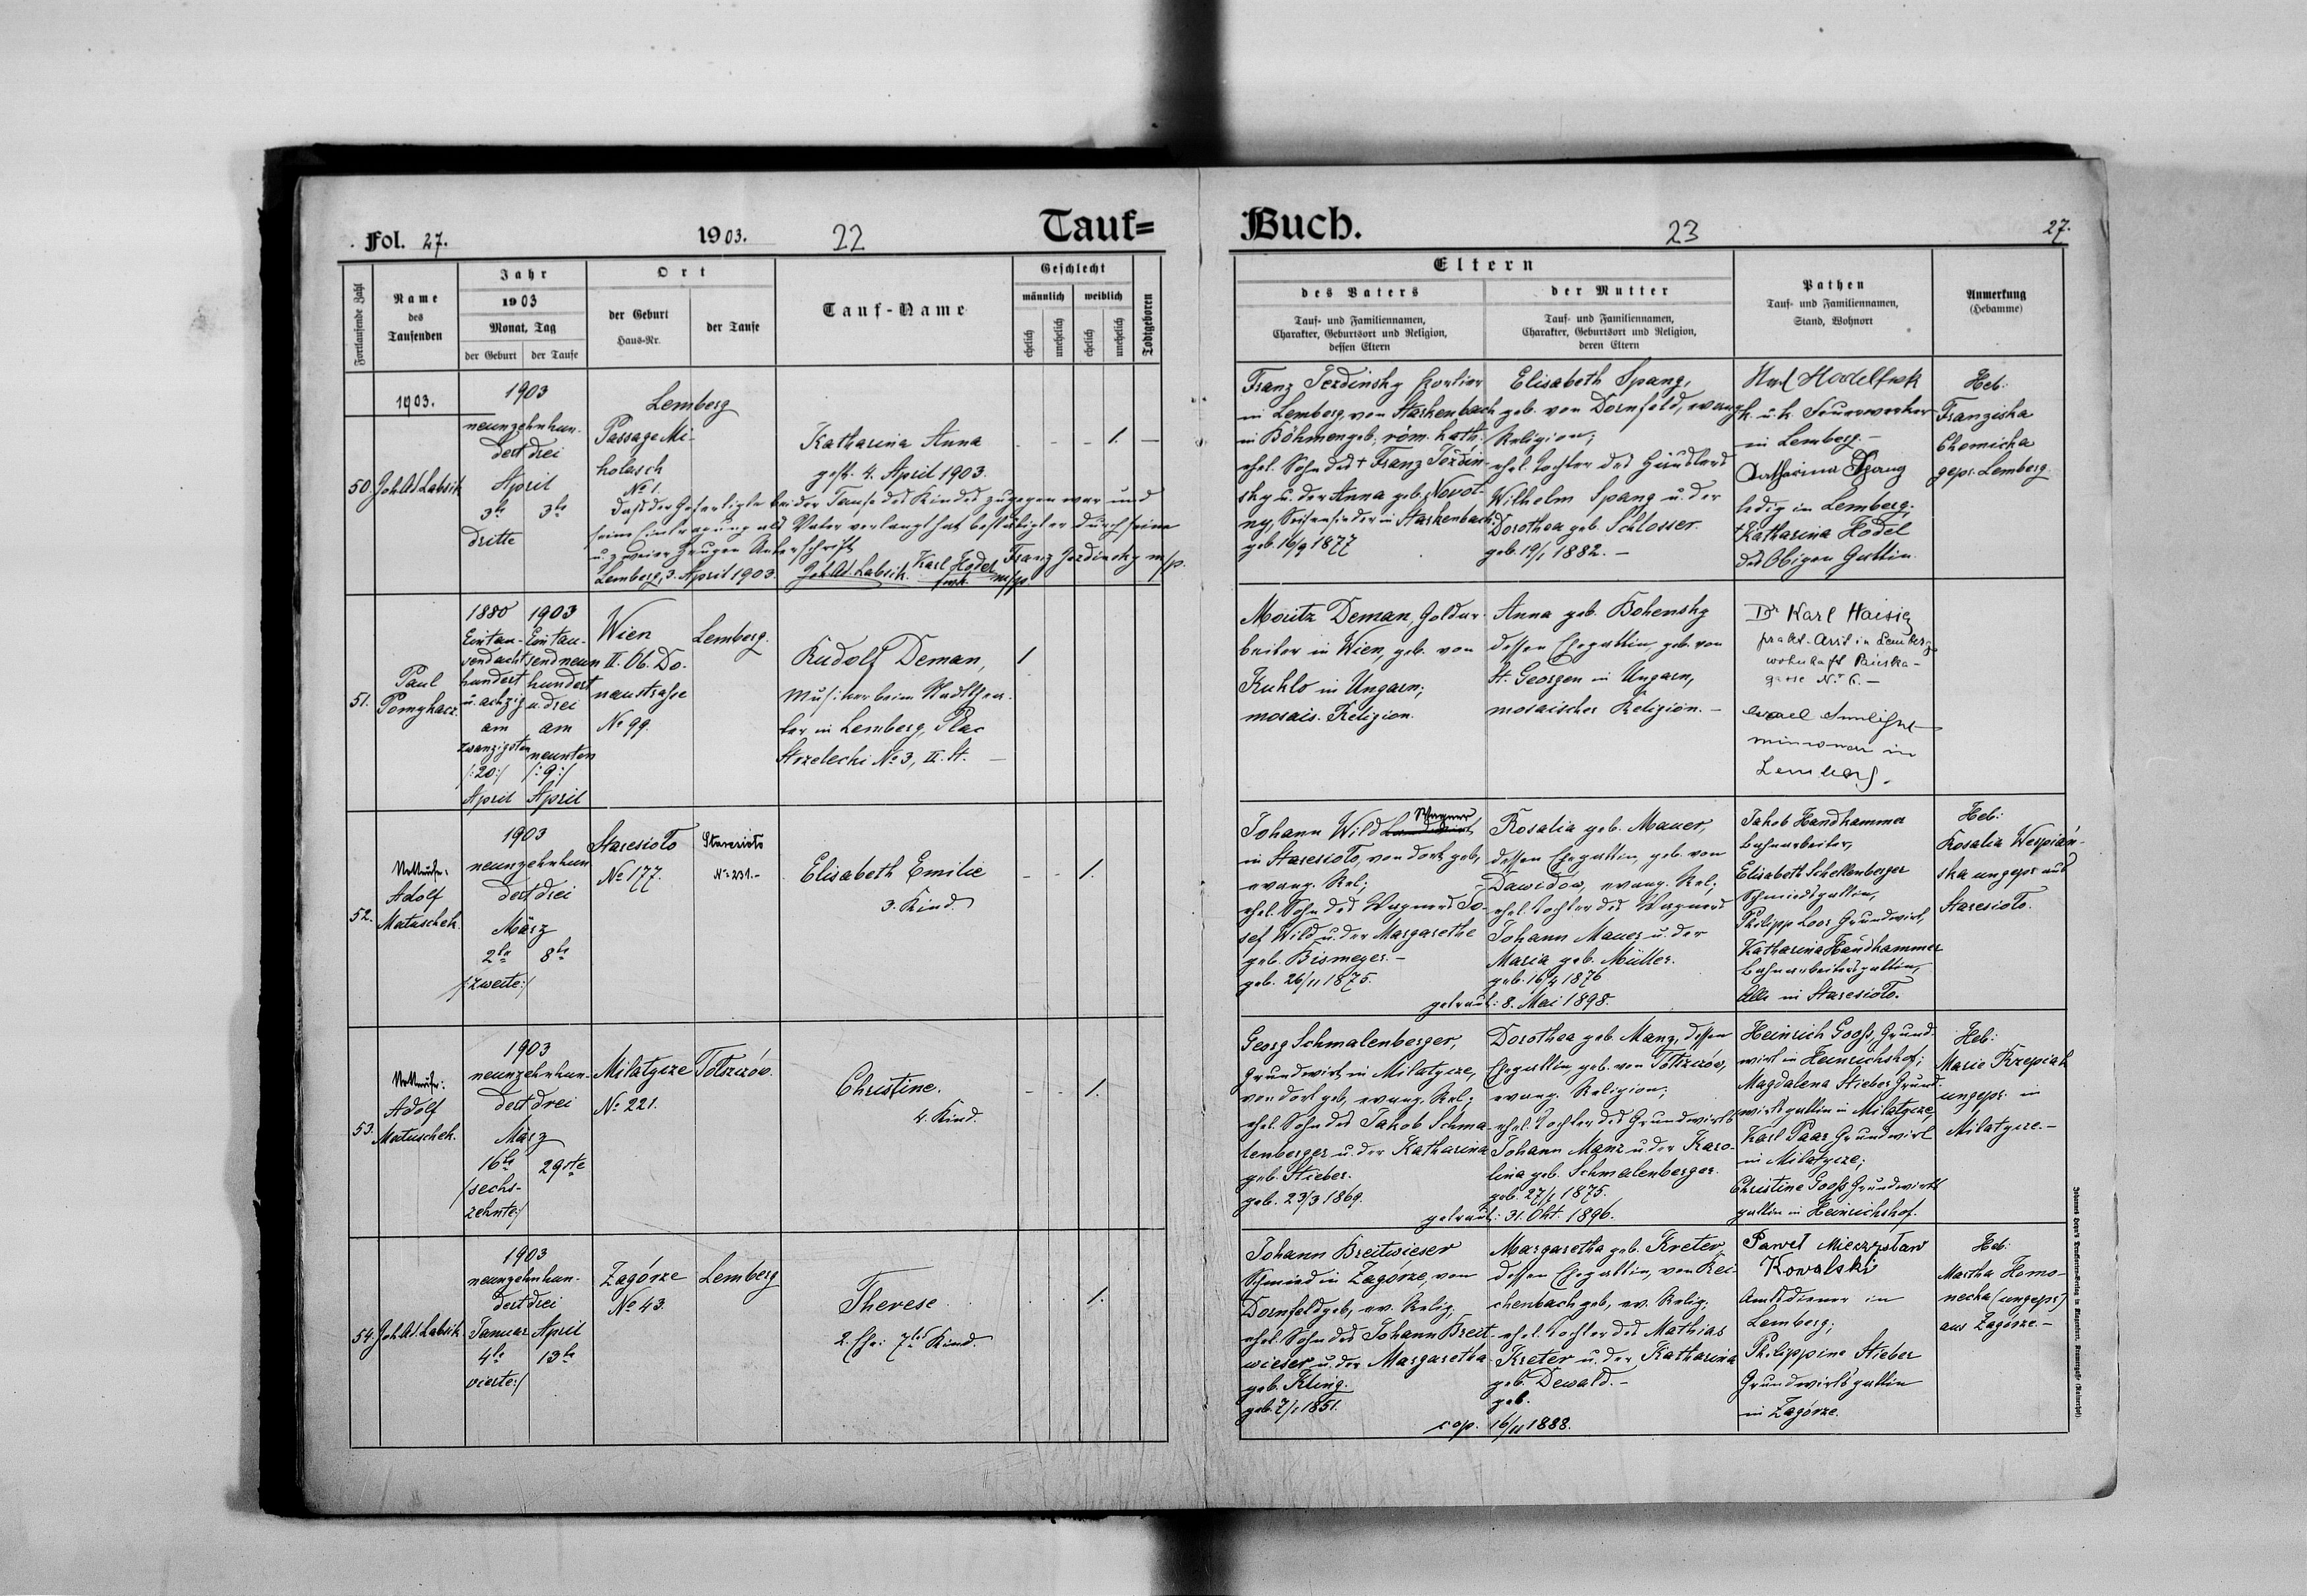 Fol. 27.
1903.
22
Tauf=
Fortlaufende Zahl
Name des Taufenden
Jahr
1903
Monat, Tag
der Geburt
der Taufe
Ort
der Geburt
Haus-Nr.
der Taufe
Tauf-Name
Geschlecht
männlich
weiblich
ehelich
unehelich
ehelich
unehelich
Todtgeboren
1903.
50.
Joh. Ad. Labsik
1903
neunzehnhun-
dert drei
April
3te
3te
dritte
Lemberg
Passage Mi-
kolasch
No 1.
Katharina Anna
gest. 4. April 1903.
1.
Daß der Gefertigte bei der Taufe des Kindes zugegen war und
seine Eintragung als Vater verlangt hat bestätigt er durch seine
u. zweier Zeugen Unterschrift
Lemberg, 3. April 1903.
Joh. Ad. Labsik.
Karl Hodel
m/p
Franz Jerdinsky m/p.
51.
Paul
Pomykacz.
1880
Ein tau-
send acht
hundert
u. achzig
am
zwanzigsten
/:20:/
April
1903
Ein tau-
send neun
hundert
u. drei
am
neunten
/:9:/
April
Wien
II. Ob. Do-
naustraße
No 99.
Lemberg.
Rudolf Deman,
Musiker beim Stadtthea-
ter in Lemberg, Plac
Strzelecki No 3, II. St.
1
52.
Adolf
Matuschek.
1903
neunzehnhun-
dert drei
März
2te
8te
/:zweite:/
Staresioło
No 177.
Staresioło
No 231.-
Elisabeth Emilie
3. Kind.
1.
53.
Adolf
Matuschek.
1903
neunzehnhun-
dert drei
März
16te
29ste
/:sechs-
zehnte:/
Milatycze
No 221.
Tołszczów.
Christine.
4. Kind.
1.
54.
Joh. Ad. Labsik
1903
neunzehnhun-
dert drei
Januar
April
4te
13te
vierte:/
Zagórze
No 43.
Lemberg
Therese.
2. Ehe: 7tes Kind.
1.
Buch.
23
27.
Eltern
des Vaters
Tauf- und Familiennamen,
Charakter, Geburtsort und Religion,
dessen Eltern
der Mutter
Tauf- und Familiennamen,
Charakter, Geburtsort und Religion,
deren Eltern
Pathen
Tauf- und Familiennamen,
Stand, Wohnort
Anmerkung
(Hebamme)
Franz Jerdinsky Portier
in Lemberg, von Starkenbach
in Böhmen geb., röm. kath.
ehel. Sohn des † Franz Jerdin-
sky u. der Anna geb. Novot-
ny, Seifensieder in Starkenbach.
geb. 16/9 1877
Elisabeth Spang,
geb. von Dornfeld, evang.
Religion;
ehel. Tochter des Händlers
Wilhelm Spang u. der
Dorothea geb. Schlosser.
geb. 19/1 1882. -
k. u. k. Feuerwerker
in Lemberg. -
Katharina Spang
ledig in Lemberg;
Katharina Hodel
des Obigen Gattin.
Heb:
Franziska
Chomicka
gepr. Lemberg.
Moritz Deman, Goldar-
beiter in Wien, geb. von
Kuhlo in Ungarn;
mosais. Religion.
Anna geb. Bohensky
dessen Ehegattin, geb. von
St. Georgen in Ungarn,
mosaischer Religion. -
Dr Karl Haisig
prakt. Arzt in Lemberg
wohnhaft
gasse No 6. -
in
Lemberg.
Johann Wild Wagner
in Staresioło, von dort geb.,
evang. Rel;
ehel. Sohn des Wagners Jo-
sef Wild u. der Margarethe
geb. Bismeyer. -
geb. 26/11 1875.
Rosalia geb. Mauer,
dessen Ehegattin, geb. von
Dawidow, evang. Rel;
ehel. Tochter des Wagners
Johann Mauer u. der
Maria geb. Müller.
geb. 16/4 1876
getraut: 8. Mai 1898.
Jakob Handkammer
Bahnarbeiter,
Elisabeth Schellenberger
Schmiedsgattin,
Philipp Loos Grundwirt,
Katharina Handkammer
Bahnarbeitersgattin,
Alle in Staresioło.
Heb:
Rosalia Wespian-
ska ungepr. aus
Staresioło.
Georg Schmalenberger,
Grundwirt in Milatycze,
von dort geb., evang. Rel.;
ehel. Sohn des Jakob Schma-
lenberger u. der Katharina
geb. Stieber.
geb. 23/3 1869.
Dorothea geb. Manz, dessen
Ehegattin geb. von Tołszczów,
evang. Religion;
ehel. Tochter des Grundwirts
Johann Manz u. der Karo-
lina geb. Schmalenberger.
geb. 27/1 1875.
getraut: 31. Okt. 1896.
Heinrich Gooß, Grund-
wirt in Heinrichshof;
Magdalena Stieber Grund-
wirtsgattin in Milatycze,
Karl Paar Grundwirt
in Milatycze;
Christine Gooß Grundwirts
gattin in Heinrichshof.
Heb:
Marie Krzepiak
ungepr. in
Milatycze. -
Johann Breitwieser
Schmied in Zagórze, von
Dornfeld geb., ev. Relig;
ehel. Sohn des Johann Breit-
wieser u. der Margaretha
geb. Kling.
geb. 7/1 1851.
Margaretha geb. Kreter
dessen Ehegattin, von Rei-
chenbach geb., ev. Relig;
ehel. Tochter des Mathias
Kreter u. der Katharina
geb. Dewald. -
geb.
cop. 16/11 1888.
Paweł Mieczysław
Kowalski
Amtsdiener in
Lemberg;
Philippine Stieber
Grundwirtsgattin
in Zagórze.
Heb:
Martha Homo-
necka (ungepr.)
aus Zagórze. -